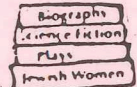 Biography
Science Fiction
Plays
Jewish Women